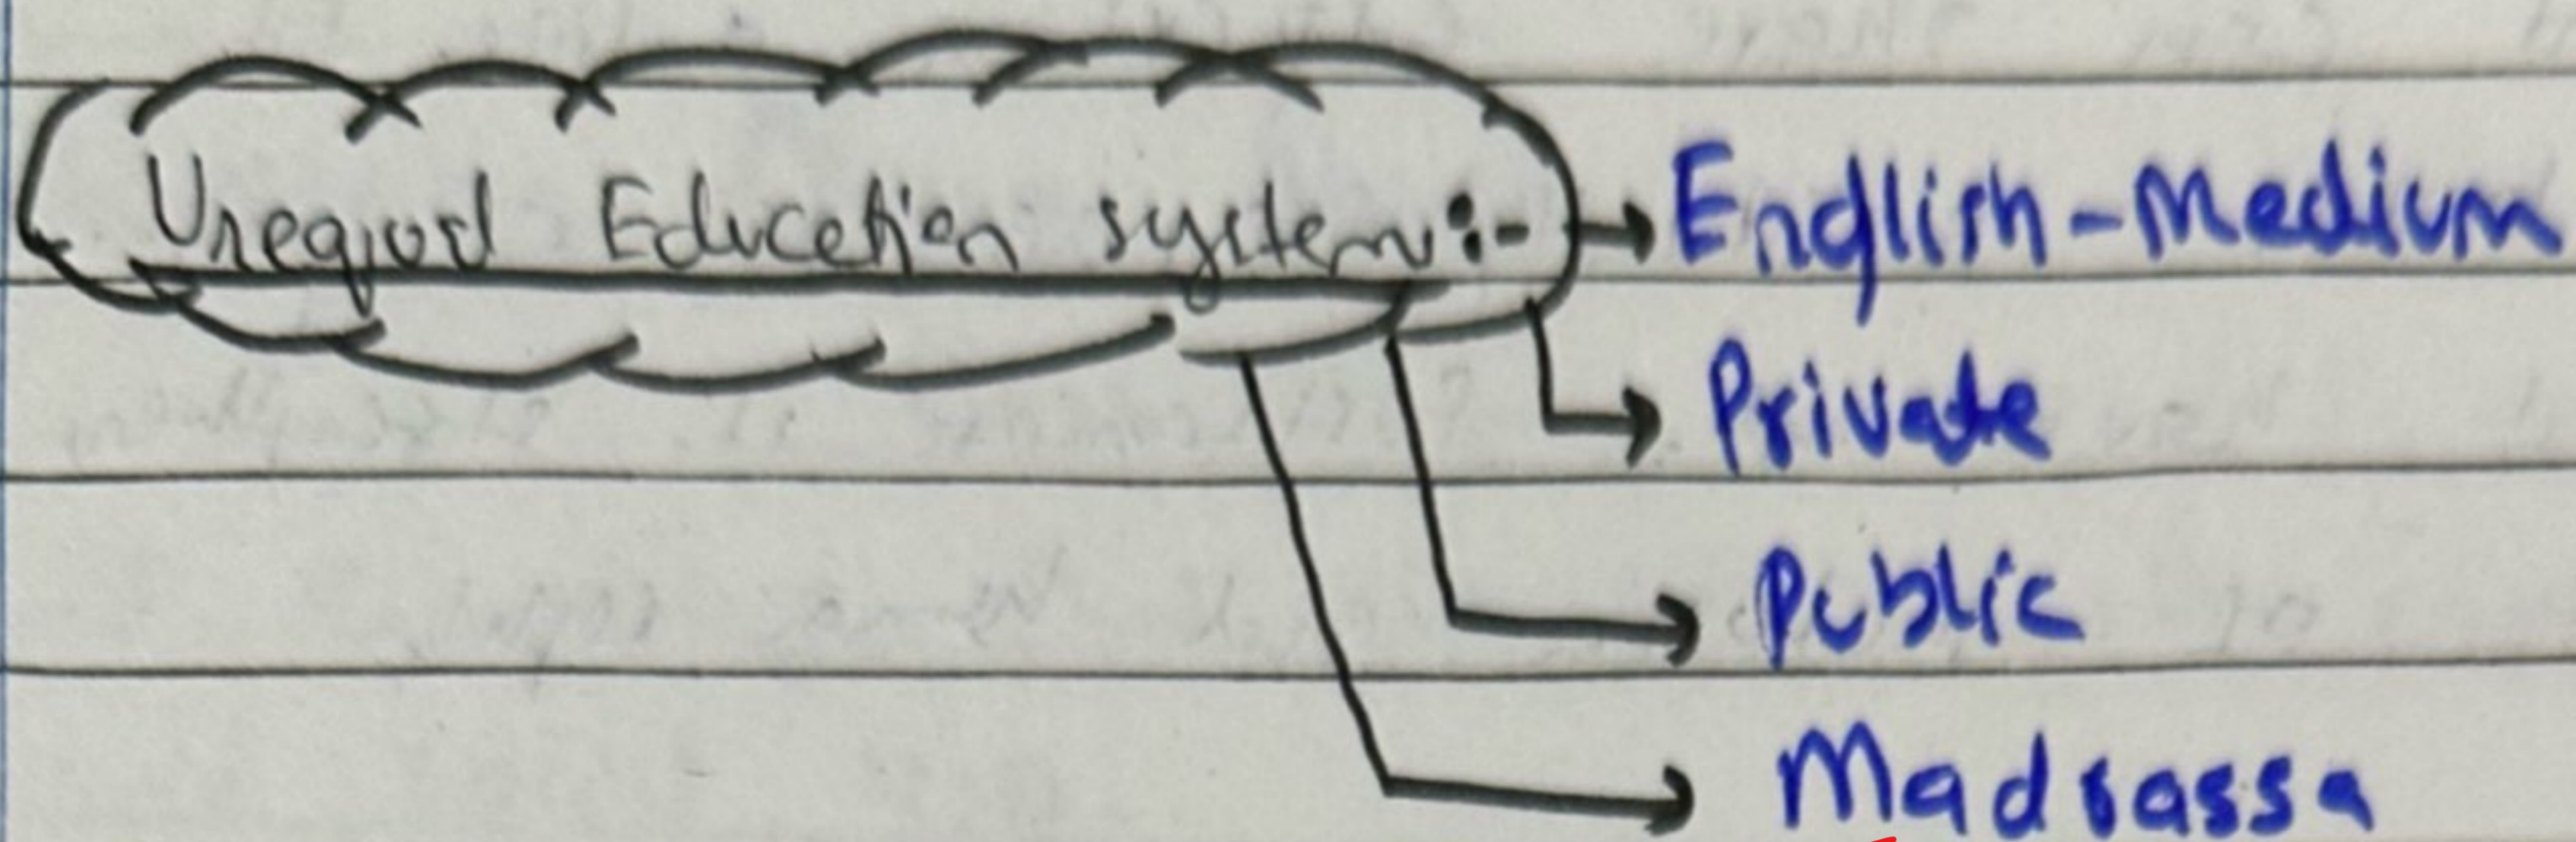 Unequal Education system:- → English-Medium
→ Private
→ Public
→ Madrassa